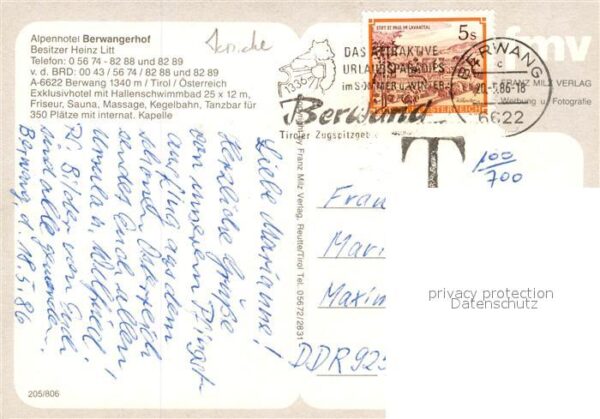 Alpenhotel Berwangerhof
Besitzer Heinz Litt
Telefon: 0 56 74 - 82 88 und 82 89
v. d. BRD: 00 43 / 56 74 / 82 88 und 82 89
A-6622 Berwang 1340 m / Tirol / Österreich
Exklusivhotel mit Hallenschwimmbad 25 x 12 m,
Friseur, Sauna, Massage, Kegelbahn, Tanzbar für
350 Plätze mit internat. Kapelle
1336
DAS ATTRAKTIVE
URLAUBSPARADIES
im SOMMER u. WINTER
Berwang
Tiroler Zugspitzgebiet
STIFT ST. PAUL IM LAVANTTAL
5s
REPUBLIK ÖSTERREICH
BERWANG
c
20.-5.86-18
6622
fmv
FRANZ MILZ VERLAG
Werbung u. Fotografie
T
100
700
Liebe Marianne!
Herzliche Grüße
von unserem Pfingst-
ausflug aus dem
schönen Österreich
sendet Euch allen
Ursula u. Wilfried!
PS Bilder von Euch
sind alle geworden.
Berwang, d. 18.5.86
by Franz Milz Verlag, Reutte/Tirol Tel. 05672/2831
Frau
Mari
Maxim
DDR 925
privacy protection
Datenschutz
205/806